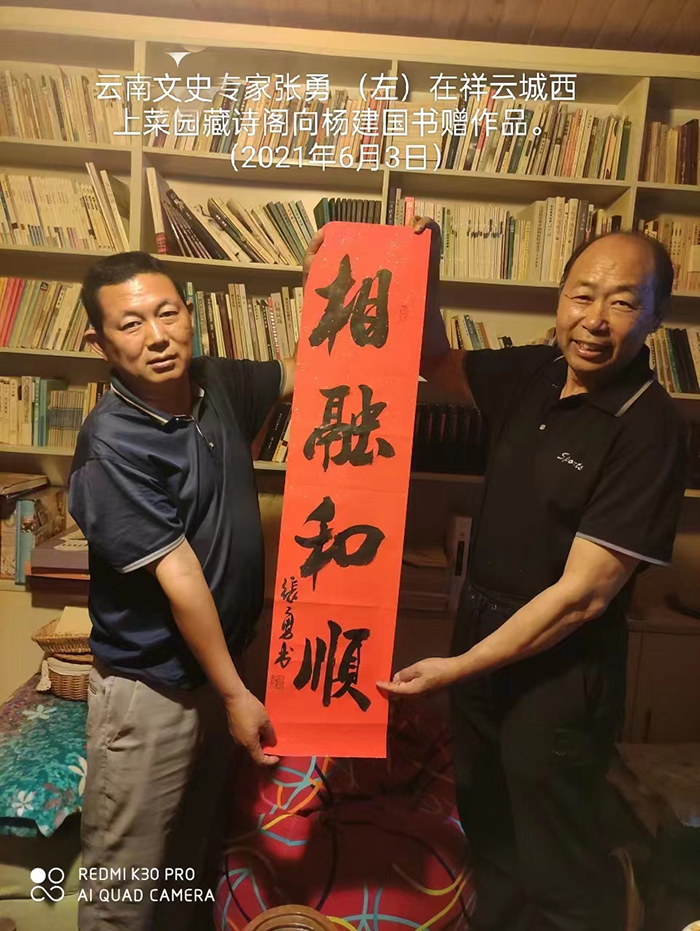 云南文史专家张勇 (左) 在祥云城西
上菜园藏诗阁向杨建国书赠作品。
(2021年6月3日)
相融和順
張勇书
Sports
REDMI K30 PRO
AI QUAD CAMERA